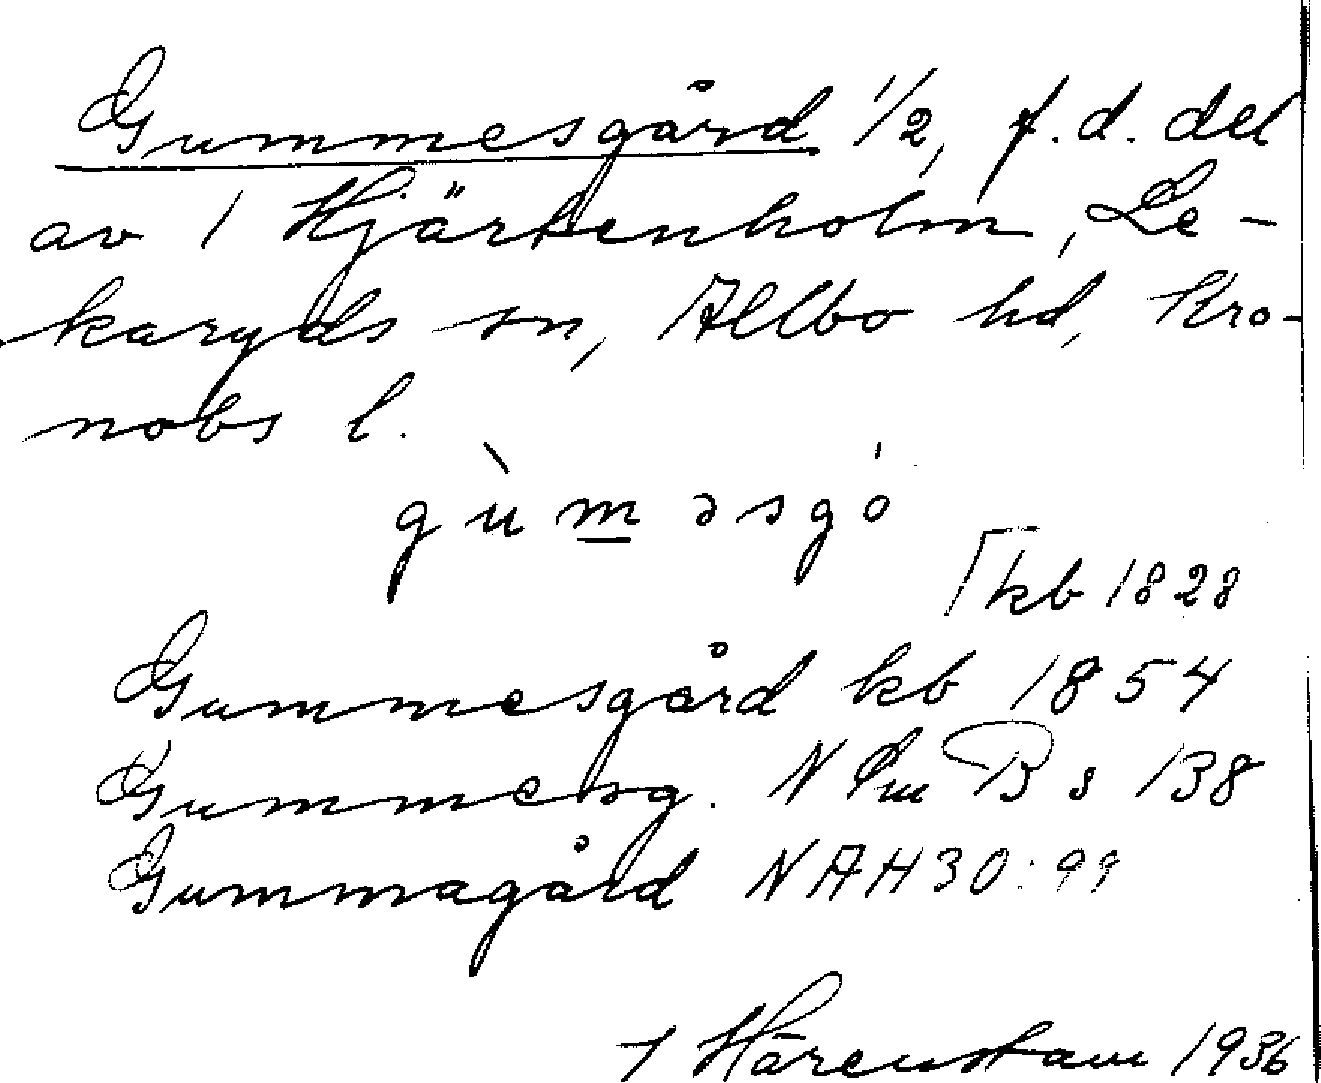 Gummesgård 1/2, f.d. del
av 1 Hjärtenholm, Le-
karyds sn, Allbo hd, Kro-
nobs l.
gùm̲əsgó
⌈kb 1828
Gummesgård kb 1854
Gummesg. N Sm B s 138
Gummagård NAH30:99
Hårenstam 1936